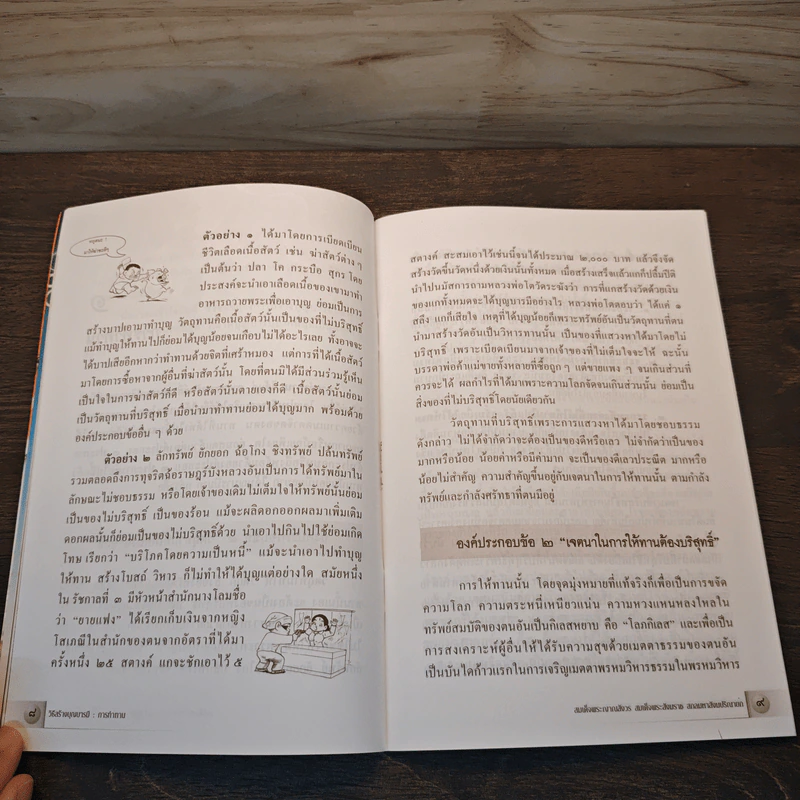 ตัวอย่าง ๑ ได้มาโดยการเบียดเบียน
ชีวิตเลือดเนื้อสัตว์ เช่น ฆ่าสัตว์ต่าง ๆ
เป็นต้นว่า ปลา โค กระบือ สุกร โดย
ประสงค์จะนำเอาเลือดเนื้อของเขามาทำ
อาหารถวายพระเพื่อเอาบุญ ย่อมเป็นการ
สร้างบาปเอามาทำบุญ วัตถุทานคือเนื้อสัตว์นั้นเป็นของที่ไม่บริสุทธิ์
แม้ทำบุญให้ทานไปก็ย่อมได้บุญน้อยจนเกือบไม่ได้อะไรเลย ทั้งอาจจะ
ได้บาปเสียอีกหากว่าทำทานด้วยจิตที่เศร้าหมอง แต่การที่ได้เนื้อสัตว์
มาโดยการซื้อหาจากผู้อื่นที่ฆ่าสัตว์นั้น โดยที่ตนมิได้มีส่วนร่วมรู้เห็น
เป็นใจในการฆ่าสัตว์ก็ดี หรือสัตว์นั้นตายเองก็ดี เนื้อสัตว์นั้นย่อม
เป็นวัตถุทานที่บริสุทธิ์ เมื่อนำมาทำทานย่อมได้บุญมาก พร้อมด้วย
องค์ประกอบข้ออื่น ๆ ด้วย
ตัวอย่าง ๒ ลักทรัพย์ ยักยอก ฉ้อโกง ชิงทรัพย์ ปล้นทรัพย์
รวมตลอดถึงการทุจริตฉ้อราษฎร์บังหลวงอันเป็นการได้ทรัพย์มาใน
ลักษณะไม่ชอบธรรม หรือโดยเจ้าของเดิมไม่เต็มใจให้ทรัพย์นั้นย่อม
เป็นของไม่บริสุทธิ์ เป็นของร้อน แม้จะผลิดอกออกผลมาเพิ่มเติม
ดอกผลนั้นก็ย่อมเป็นของไม่บริสุทธิ์ด้วย นำเอาไปกินไปใช้ย่อมเกิด
โทษ เรียกว่า “บริโภคโดยความเป็นหนี้” แม้จะนำเอาไปทำบุญ
ให้ทาน สร้างโบสถ์ วิหาร ก็ไม่ทำให้ได้บุญแต่อย่างใด สมัยหนึ่ง
ใน รัชกาลที่ ๓ มีหัวหน้าสำนักนางโลมชื่อ
ว่า “ยายแฟง” ได้เรียกเก็บเงินจากหญิง
โสเภณีในสำนักของตนจากอัตราที่ได้มา
ครั้งหนึ่ง ๒๕ สตางค์ แกจะชักเอาไว้ ๕
๘ วิธีสร้างบุญบารมี : การทำทาน
สตางค์ สะสมเอาไว้เช่นนี้จนได้ประมาณ ๒,๐๐๐ บาท แล้วจึงจัด
สร้างวัดขึ้นวัดหนึ่งด้วยเงินนั้นทั้งหมด เมื่อสร้างเสร็จแล้วแกก็ปลื้มปีติ
นำไปนมัสการถามหลวงพ่อโตวัดระฆังว่า การที่แกสร้างวัดด้วยเงิน
ของแกทั้งหมดจะได้บุญบารมีอย่างไร หลวงพ่อโตตอบว่า ได้แค่ ๑
สลึง แกก็เสียใจ เหตุที่ได้บุญน้อยก็เพราะทรัพย์อันเป็นวัตถุทานที่ตน
นำมาสร้างวัดอันเป็นวิหารทานนั้น เป็นของที่แสวงหาได้มาโดยไม่
บริสุทธิ์ เพราะเบียดเบียนมาจากเจ้าของที่ไม่เต็มใจจะให้ ฉะนั้น
บรรดาพ่อค้าแม่ขายทั้งหลายที่ซื้อถูก ๆ แต่ขายแพง ๆ จนเกินส่วนที่
ควรจะได้ ผลกำไรที่ได้มาเพราะความโลภจัดจนเกินส่วนนั้น ย่อมเป็น
สิ่งของที่ไม่บริสุทธิ์โดยนัยเดียวกัน
วัตถุทานที่บริสุทธิ์เพราะการแสวงหาได้มาโดยชอบธรรม
ดังกล่าว ไม่ได้จำกัดว่าจะต้องเป็นของดีหรือเลว ไม่จำกัดว่าเป็นของ
มากหรือน้อย น้อยค่าหรือมีค่ามาก จะเป็นของดีเลวประณีต มากหรือ
น้อยไม่สำคัญ ความสำคัญขึ้นอยู่กับเจตนาในการให้ทานนั้น ตามกำลัง
ทรัพย์และกำลังศรัทธาที่ตนมีอยู่
องค์ประกอบข้อ ๒ “เจตนาในการให้ทานต้องบริสุทธิ์”
การให้ทานนั้น โดยจุดมุ่งหมายที่แท้จริงก็เพื่อเป็นการขจัด
ความโลภ ความตระหนี่เหนียวแน่น ความหวงแหนหลงใหลใน
ทรัพย์สมบัติของตนอันเป็นกิเลสหยาบ คือ “โลภกิเลส” และเพื่อเป็น
การสงเคราะห์ผู้อื่นให้ได้รับความสุขด้วยเมตตาธรรมของตนอัน
เป็นบันไดก้าวแรกในการเจริญเมตตาพรหมวิหารธรรมในพรหมวิหาร
สมเด็จพระญาณสังวร สมเด็จพระสังฆราช สกลมหาสังฆปริณายก ๙